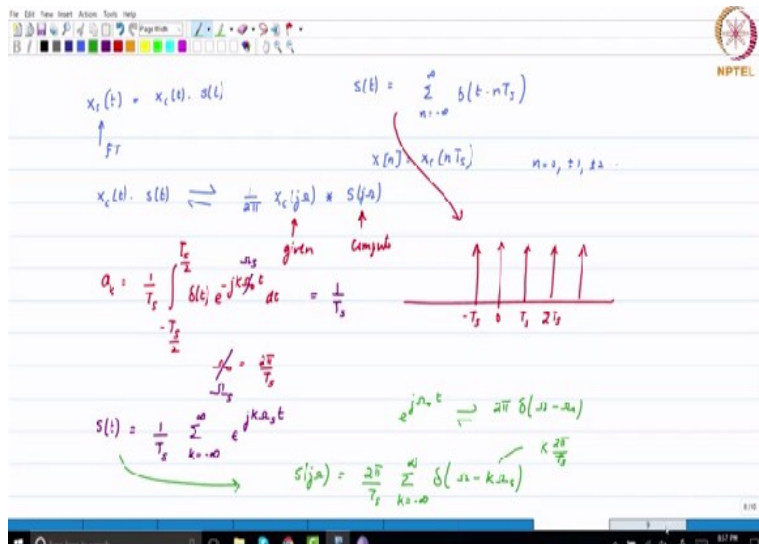 File Edit View Insert Actions Tools Help
Page Width
NPTEL
x_s(t) = x_c(t) . s(t)
s(t) = ∑_{n=-∞}^{∞} δ(t-nT_s)
FT
x[n] = x_c(nT_s) n=0, ±1, ±2 ..
x_c(t). s(t) ⇌ 1/2π X_c(jΩ) * S(jΩ)
given compute
a_k = 1/T_s ∫_{-T_s/2}^{T_s/2} δ(t) e^{-jkΩ_s t} dt = 1/T_s
-T_s 0 T_s 2T_s
Ω_s = 2π/T_s
e^{jΩ_0 t} ⇌ 2π δ(Ω-Ω_0)
s(t) = 1/T_s ∑_{k=-∞}^{∞} e^{jkΩ_s t}
k 2π/T_s
S(jΩ) = 2π/T_s ∑_{k=-∞}^{∞} δ(Ω - kΩ_s)
8:57 PM